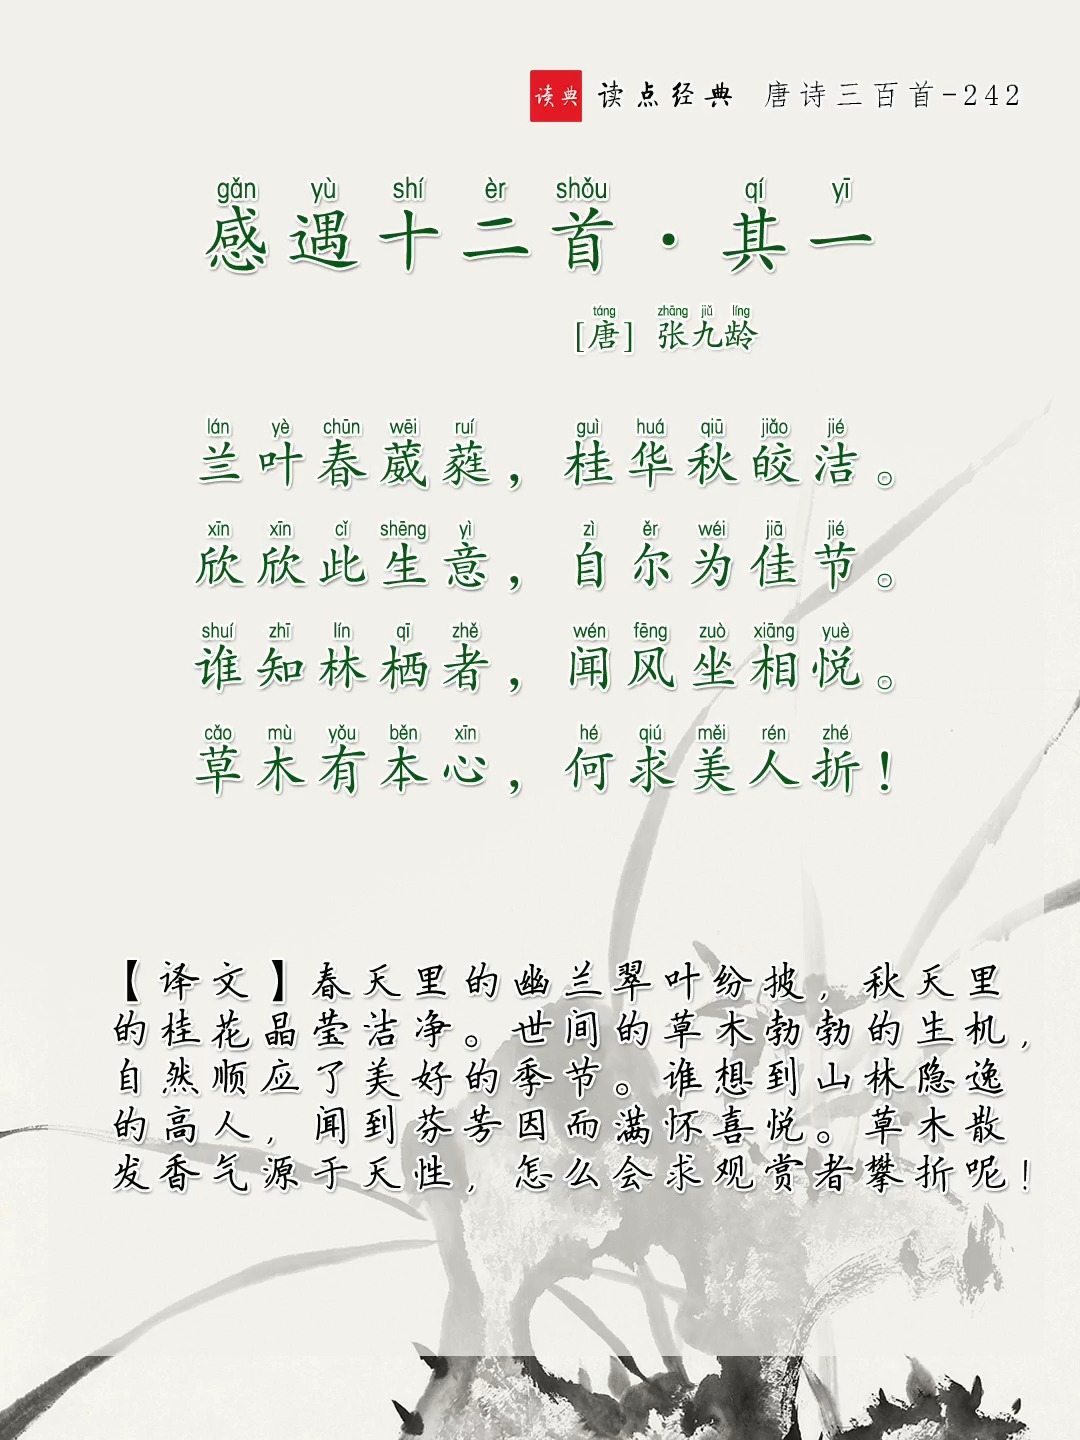 读典 读点经典 唐诗三百首-242
gǎn yù shí èr shǒu qí yī
感遇十二首·其一
táng zhāng jiǔ líng
[唐] 张九龄
lán yè chūn wēi ruí guì huá qiū jiǎo jié
兰叶春葳蕤，桂华秋皎洁。
xīn xīn cǐ shēng yì zì ěr wéi jiā jié
欣欣此生意，自尔为佳节。
shuí zhī lín qī zhě wén fēng zuò xiāng yuè
谁知林栖者，闻风坐相悦。
cǎo mù yǒu běn xīn hé qiú měi rén zhé
草木有本心，何求美人折！
【译文】春天里的幽兰翠叶纷披，秋天里
的桂花晶莹洁净。世间的草木勃勃的生机，
自然顺应了美好的季节。谁想到山林隐逸
的高人，闻到芬芳因而满怀喜悦。草木散
发香气源于天性，怎么会求观赏者攀折呢！